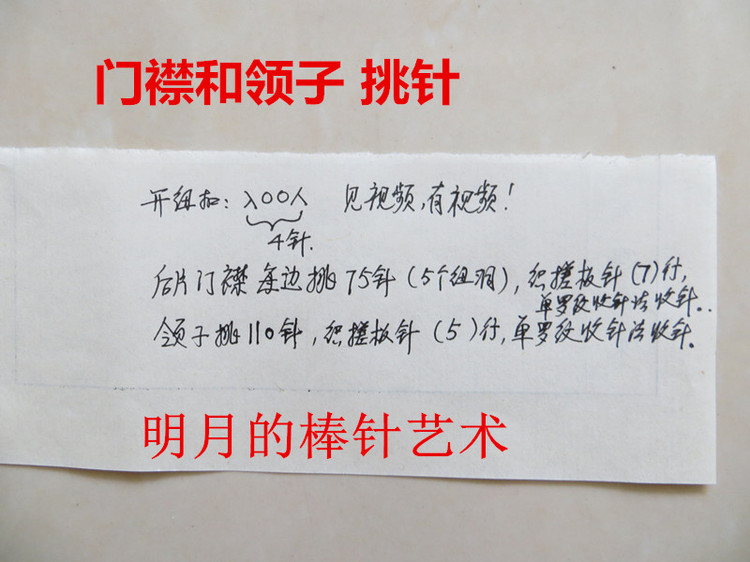 门襟和领子 挑针
开纽扣：入00人 见视频，有视频！
4针.
后片门襟每边挑75针（5个纽洞），织搓板针（7）行，
单罗纹收针法收针..
领子挑110针，织搓板针（5）行，单罗纹收针法收针.
明月的棒针艺术